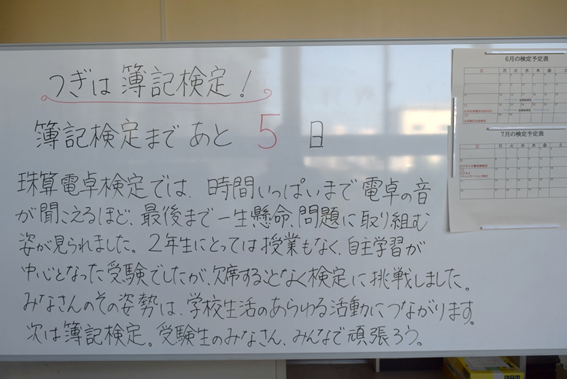 つぎは簿記検定!
簿記検定まで あと 5 日
珠算電卓検定では、時間いっぱいまで電卓の音
が聞こえるほど、最後まで一生懸命、問題に取り組む
姿が見られました。2年生にとっては授業もなく、自主学習が
中心となった受験でしたが、欠席することなく検定に挑戦しました。
みなさんのその姿勢は、学校生活のあらゆる活動につながります。
次は簿記検定。受験生のみなさん、みんなで頑張ろう。
6月の検定予定表
7月の検定予定表